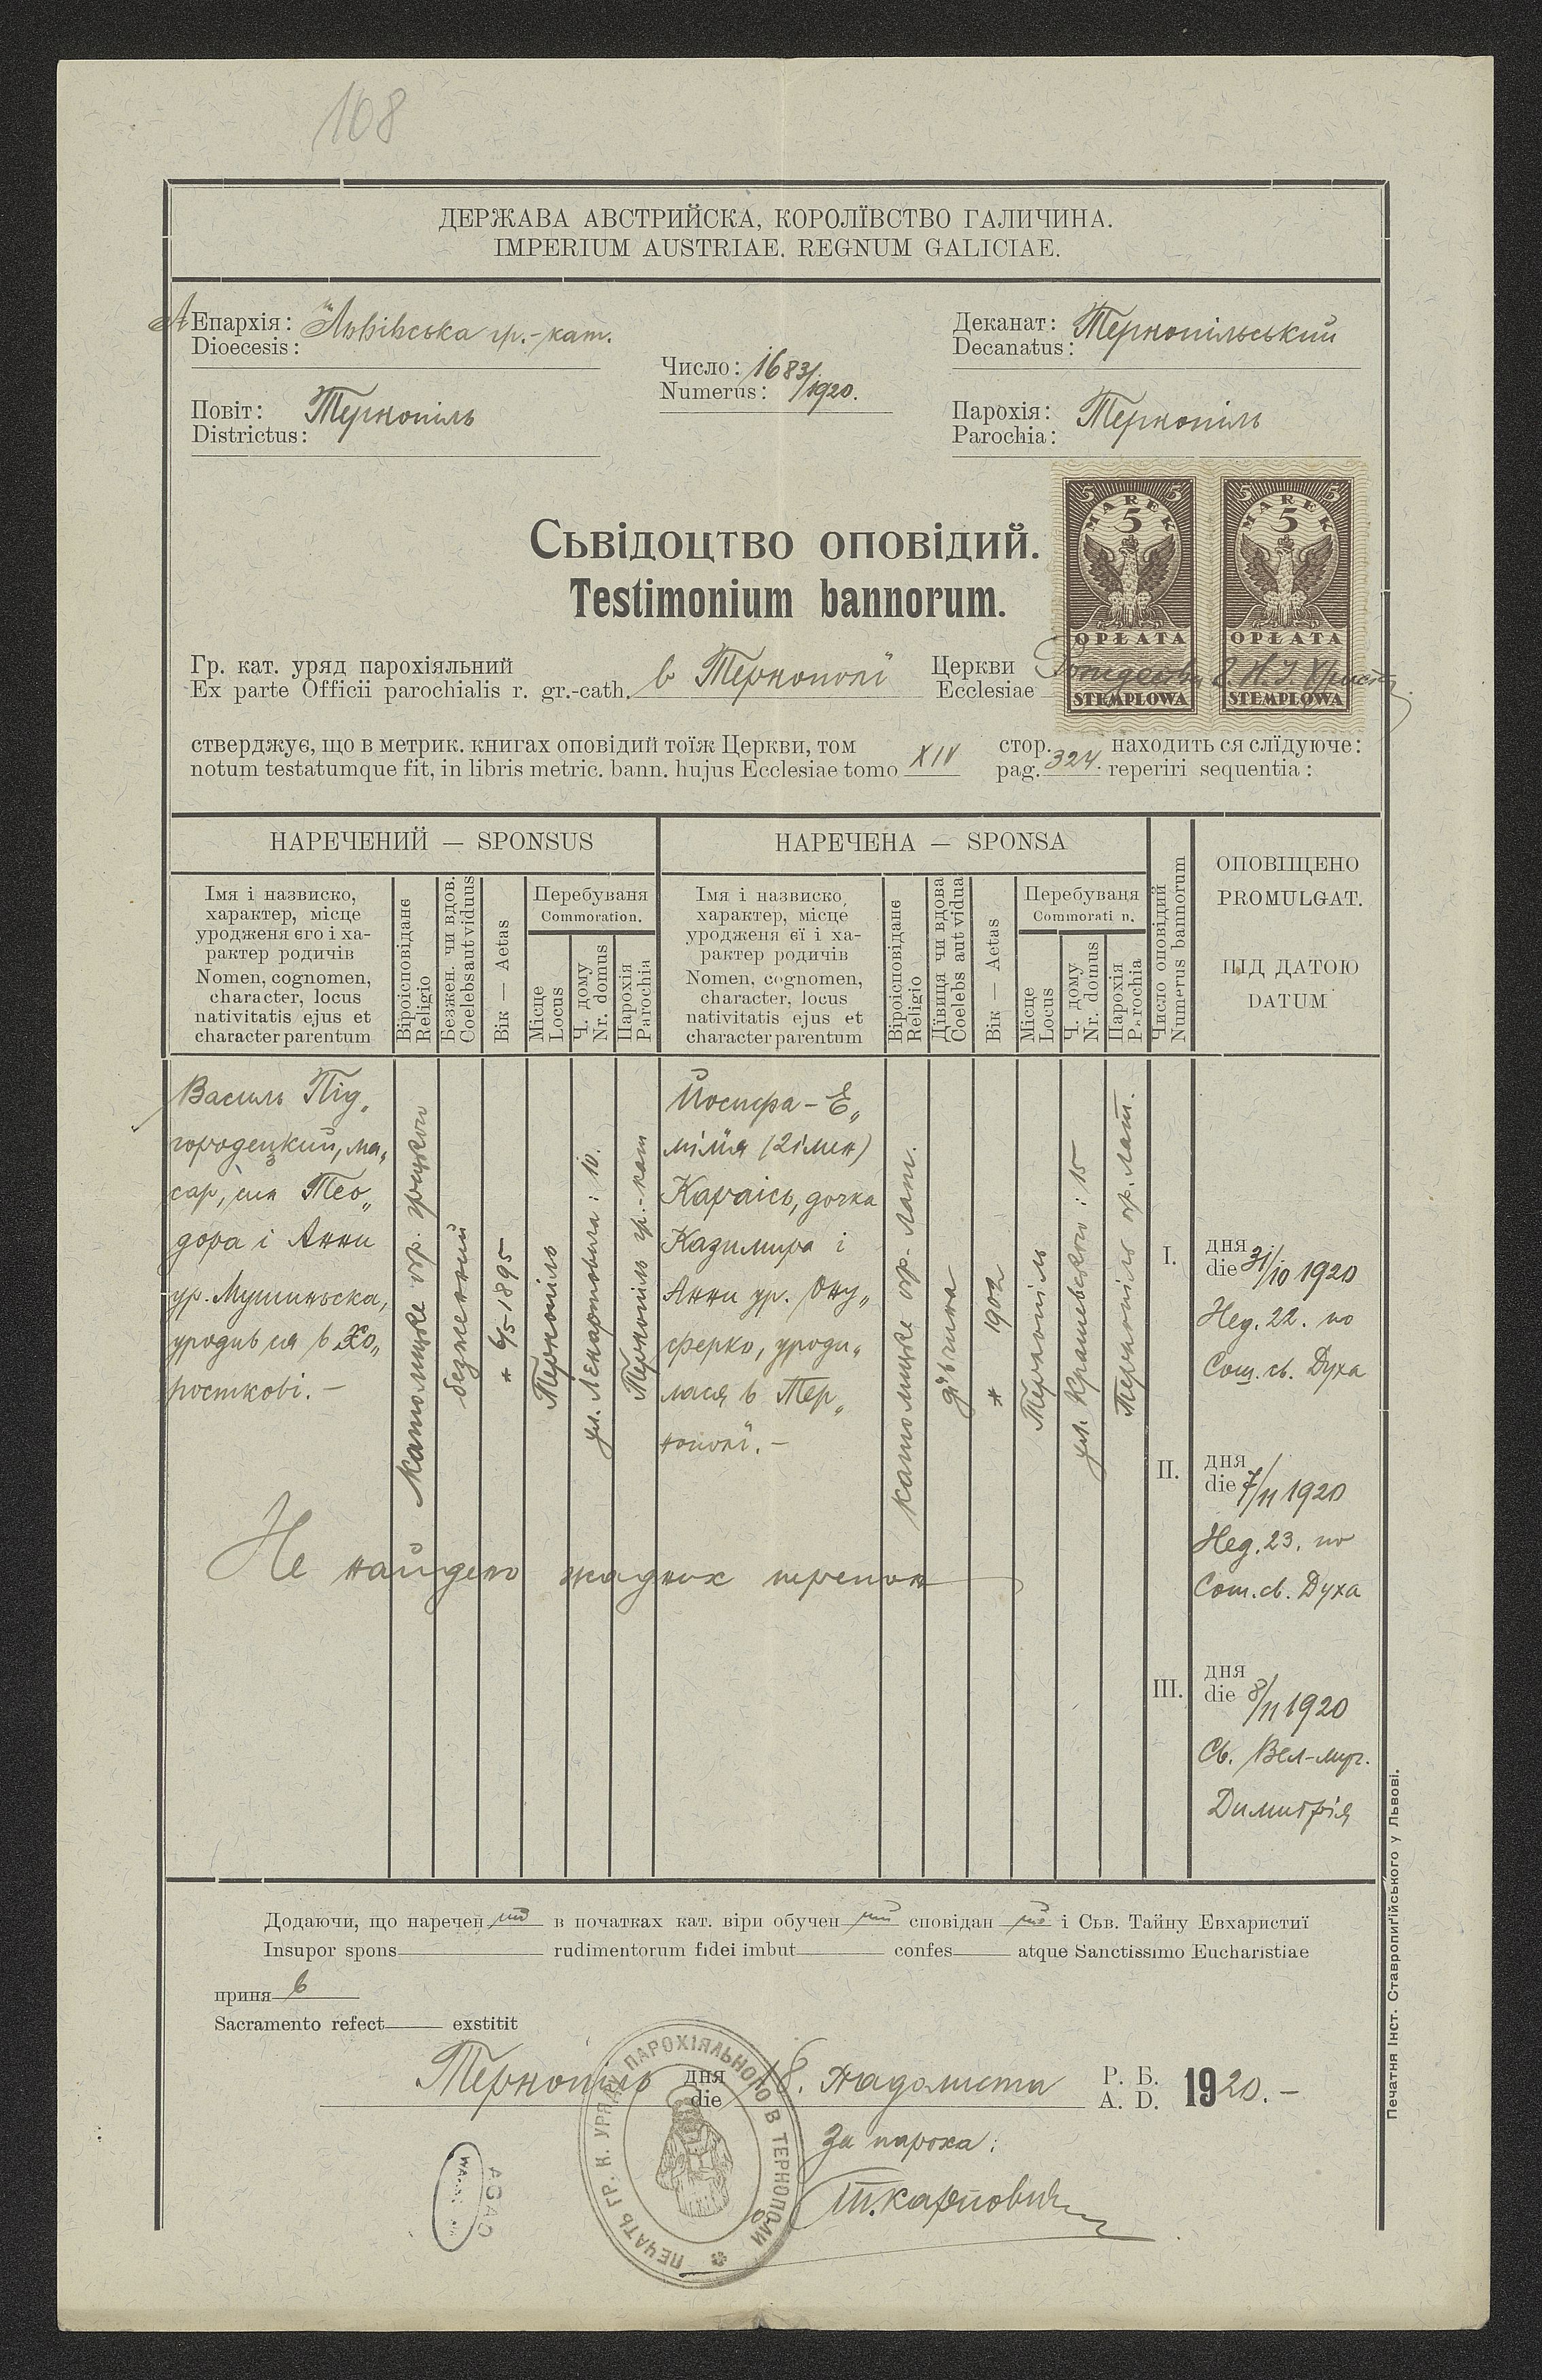 108
ДЕРЖАВА АВСТРИЙСКА, КОРОЛЇВСТВО ГАЛИЧИНА.
IMPERIUM AUSTRIAE. REGNUM GALICIAE.
АЕпархія: Львівська гр.-кат.
Dioecesis:
Деканат: Тернопільський
Decanatus:
Число: 1683/1920.
Numerus:
Повіт: Тернопіль
Districtus:
Парохія: Тернопіль
Parochia:
5 5 MAREK 5 OPŁATA STEMPLOWA
5 5 MAREK 5 OPŁATA STEMPLOWA
Сьвідоцтво оповідий.
Testimonium bannorum.
Гр. кат. уряд парохіяльний в Тернополї Церкви Рождества Г. Н. І. Христа
Ex parte Officii parochialis r. gr.-cath. Ecclesiae
стверджує, що в метрик. книгах оповідий тоїж Церкви, том XIV стор. 324. находить ся слїдуюче:
notum testatumque fit, in libris metric. bann. hujus Ecclesiae tomo pag. reperiri sequentia:
НАРЕЧЕНИЙ — SPONSUS
НАРЕЧЕНА — SPONSA
Імя і назвиско,
характер, місце
уродженя єго і ха-
рактер родичів
Nomen, cognomen,
character, locus
nativitatis ejus et
character parentum
Віроісповіданє
Religio
Безжен. чи вдов.
Coelebs aut viduus
Вік — Aetas
Перебуваня
Commoration.
Місце
Locus
Ч. дому
Nr. domus
Парохія
Parochia
Імя і назвиско,
характер, місце
уродженя єї і ха-
рактер родичів
Nomen, cognomen,
character, locus
nativitatis ejus et
character parentum
Віроісповіданє
Religio
Дївиця чи вдова
Coelebs aut vidua
Вік — Aetas
Перебуваня
Commorati n.
Місце
Locus
Ч. дому
Nr. domus
Парохія
Parochia
Число оповідий
Numerus bannorum
ОПОВІЩЕНО
PROMULGAT.
ПІД ДАТОЮ
DATUM
Василь Під„
городецкий, ма„
сар, син Тео„
дора і Анни
ур. Мушиньска,
уродив ся в Хо„
росткові. —
католицке обр. грецкого
безженний
* 6/5 1895
Тернопіль
ул. Лєнартовича: 10.
Тернопіль гр.-кат
Йосифа - Е„
мілїя (2 імен)
Караісь, дочка
Казимира і
Анни ур. Ону„
ферко, уроди„
лася в Тер„
нополї. —
католицке обр. лат.
дївчина
* 1902
Тернопіль
ул. Крашевского: 15
Тернопіль обр. лат.
I. дня
die 31/10 1920
Нед. 22. по
Сош. св. Духа
II. дня
die 7/11 1920
Нед. 23. по
Сош. св. Духа
III. дня
die 8/11 1920
Св. Вел-муч.
Димитрія
Не найдено жадних перепон
Додаючи, що наречен ий в початках кат. віри обучен ий сповідан ий і Сьв. Тайну Евхаристиї
Insupor spons rudimentorum fidei imbut confes atque Sanctissimo Eucharistiae
приня в
Sacramento refect exstitit
Тернопіль дня 18. падолиста Р. Б. 1920. —
die A. D.
За пароха:
ПЕЧАТЬ ГР. К. УРЯДУ ПАРОХІЯЛЬНОГО В ТЕРНОПОЛИ
AGAD
Печатня Інст. Ставропиґійського у Львові.